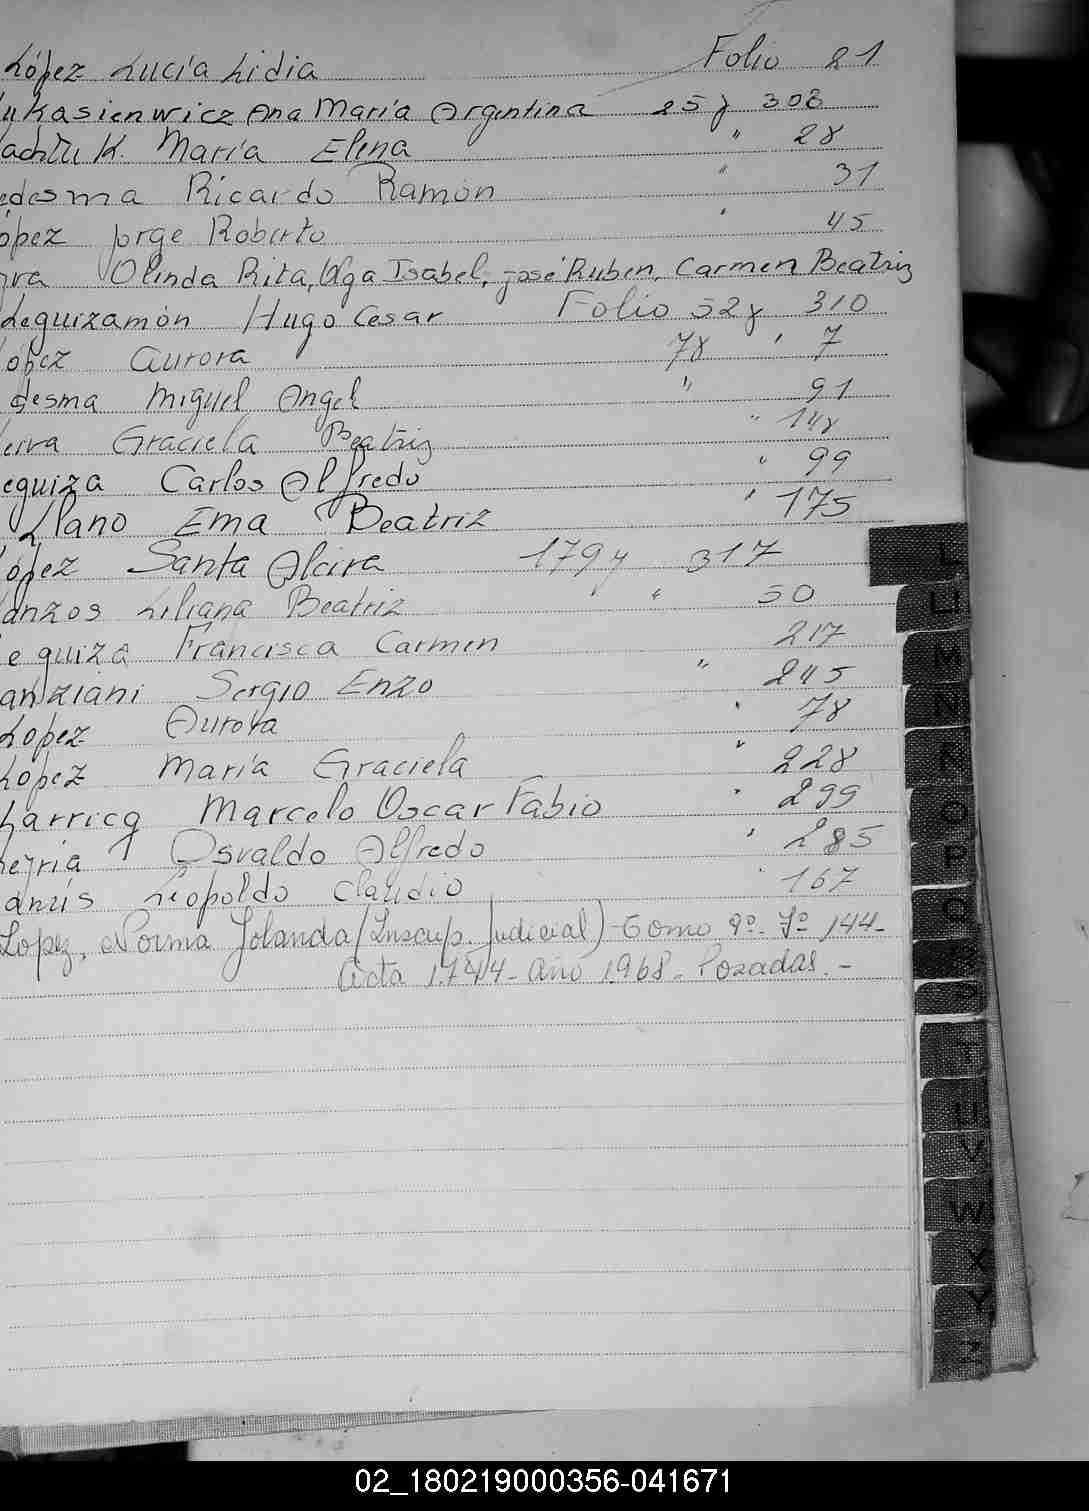 López Lucía Lidia Folio 21
ukasienwicz Ana María Argentina 25 y 303
achtuk. María Elena " 28
edesma Ricardo Ramón " 31
ópez Jorge Roberto " 45
Olinda Rita, Olga Isabel, José Ruben, Carmen Beatriz
Leguizamón Hugo Cesar Folio 52 y 310
ópez Aurora 78 " 7
desma Miguel Angel " 91
eiva Graciela Beatriz " 148
eguiza Carlos Alfredo " 99
Llano Ema Beatriz " 175
ópez Santa Alcira 179 y 317
anzos Liliana Beatriz " 50
eguiza Francisca Carmen 217
anziani Sergio Enzo " 245
Lopez Aurora " 78
Lopez María Graciela " 228
Larricq Marcelo Oscar Fabio " 299
Leyria Osvaldo Alfredo " 285
anús Leopoldo Claudio " 167
Lopez, Norma Yolanda (Inscrip. Judicial) - Tomo 9º - Fº 144 -
Acta 1.744 - Año 1.968 - Posadas. -
L
LL
M
N
Ñ
O
P
Q
R
S
T
U
V
W
X
Y
Z
02_180219000356-041671